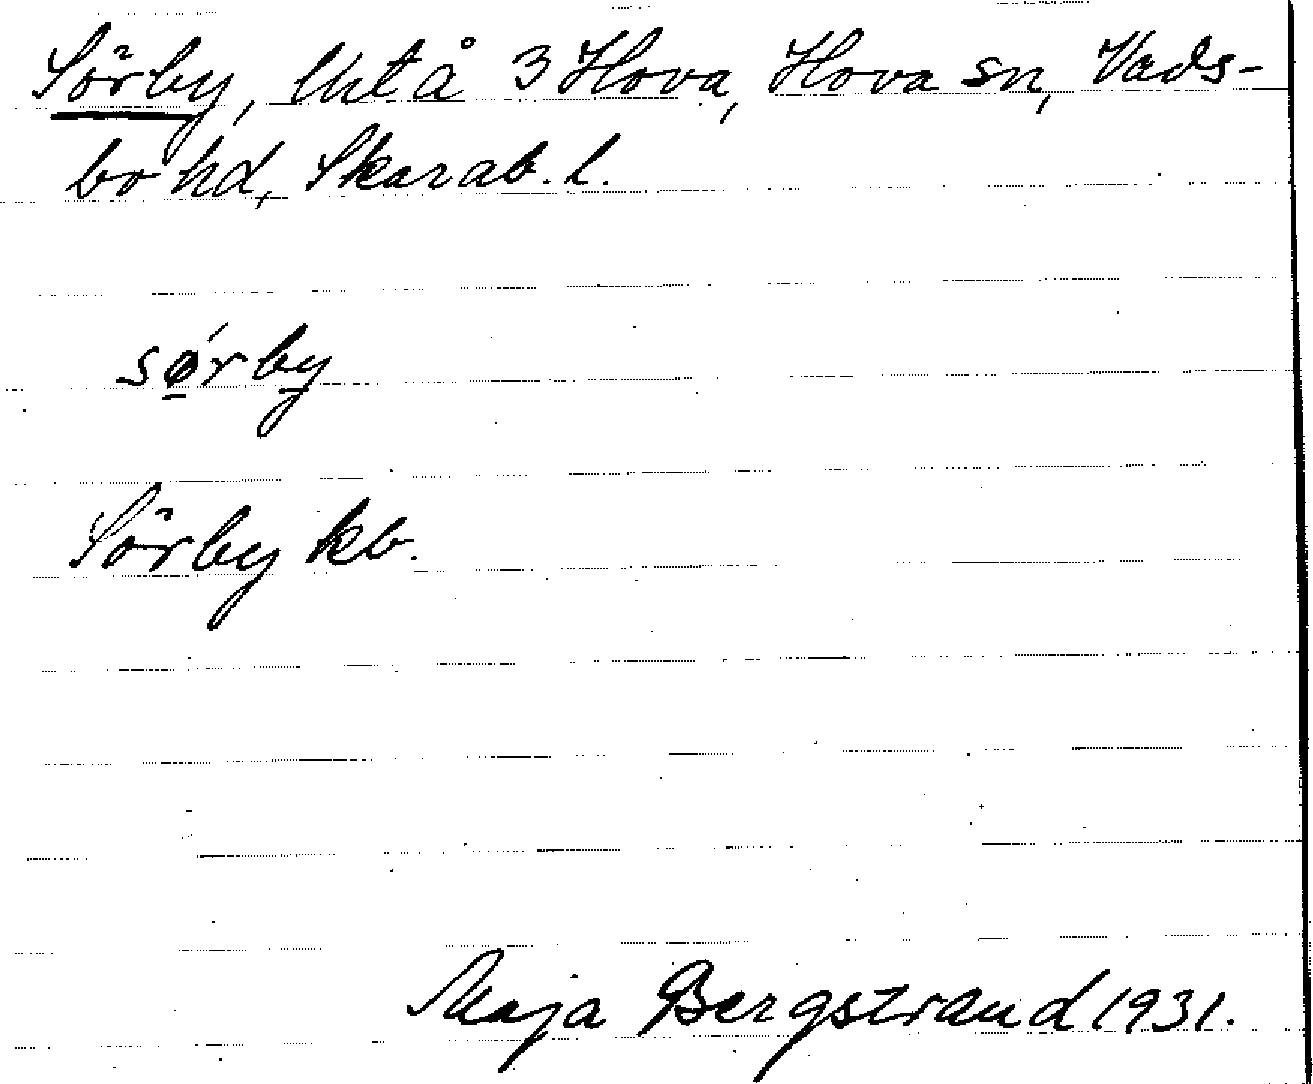 Sörby, Utå 3 Hova, Hova sn, Vads-
bo hd, Skarab. l.
sǿ̱rby̱
Sörby kb.
Maja Bergstrand 1931.